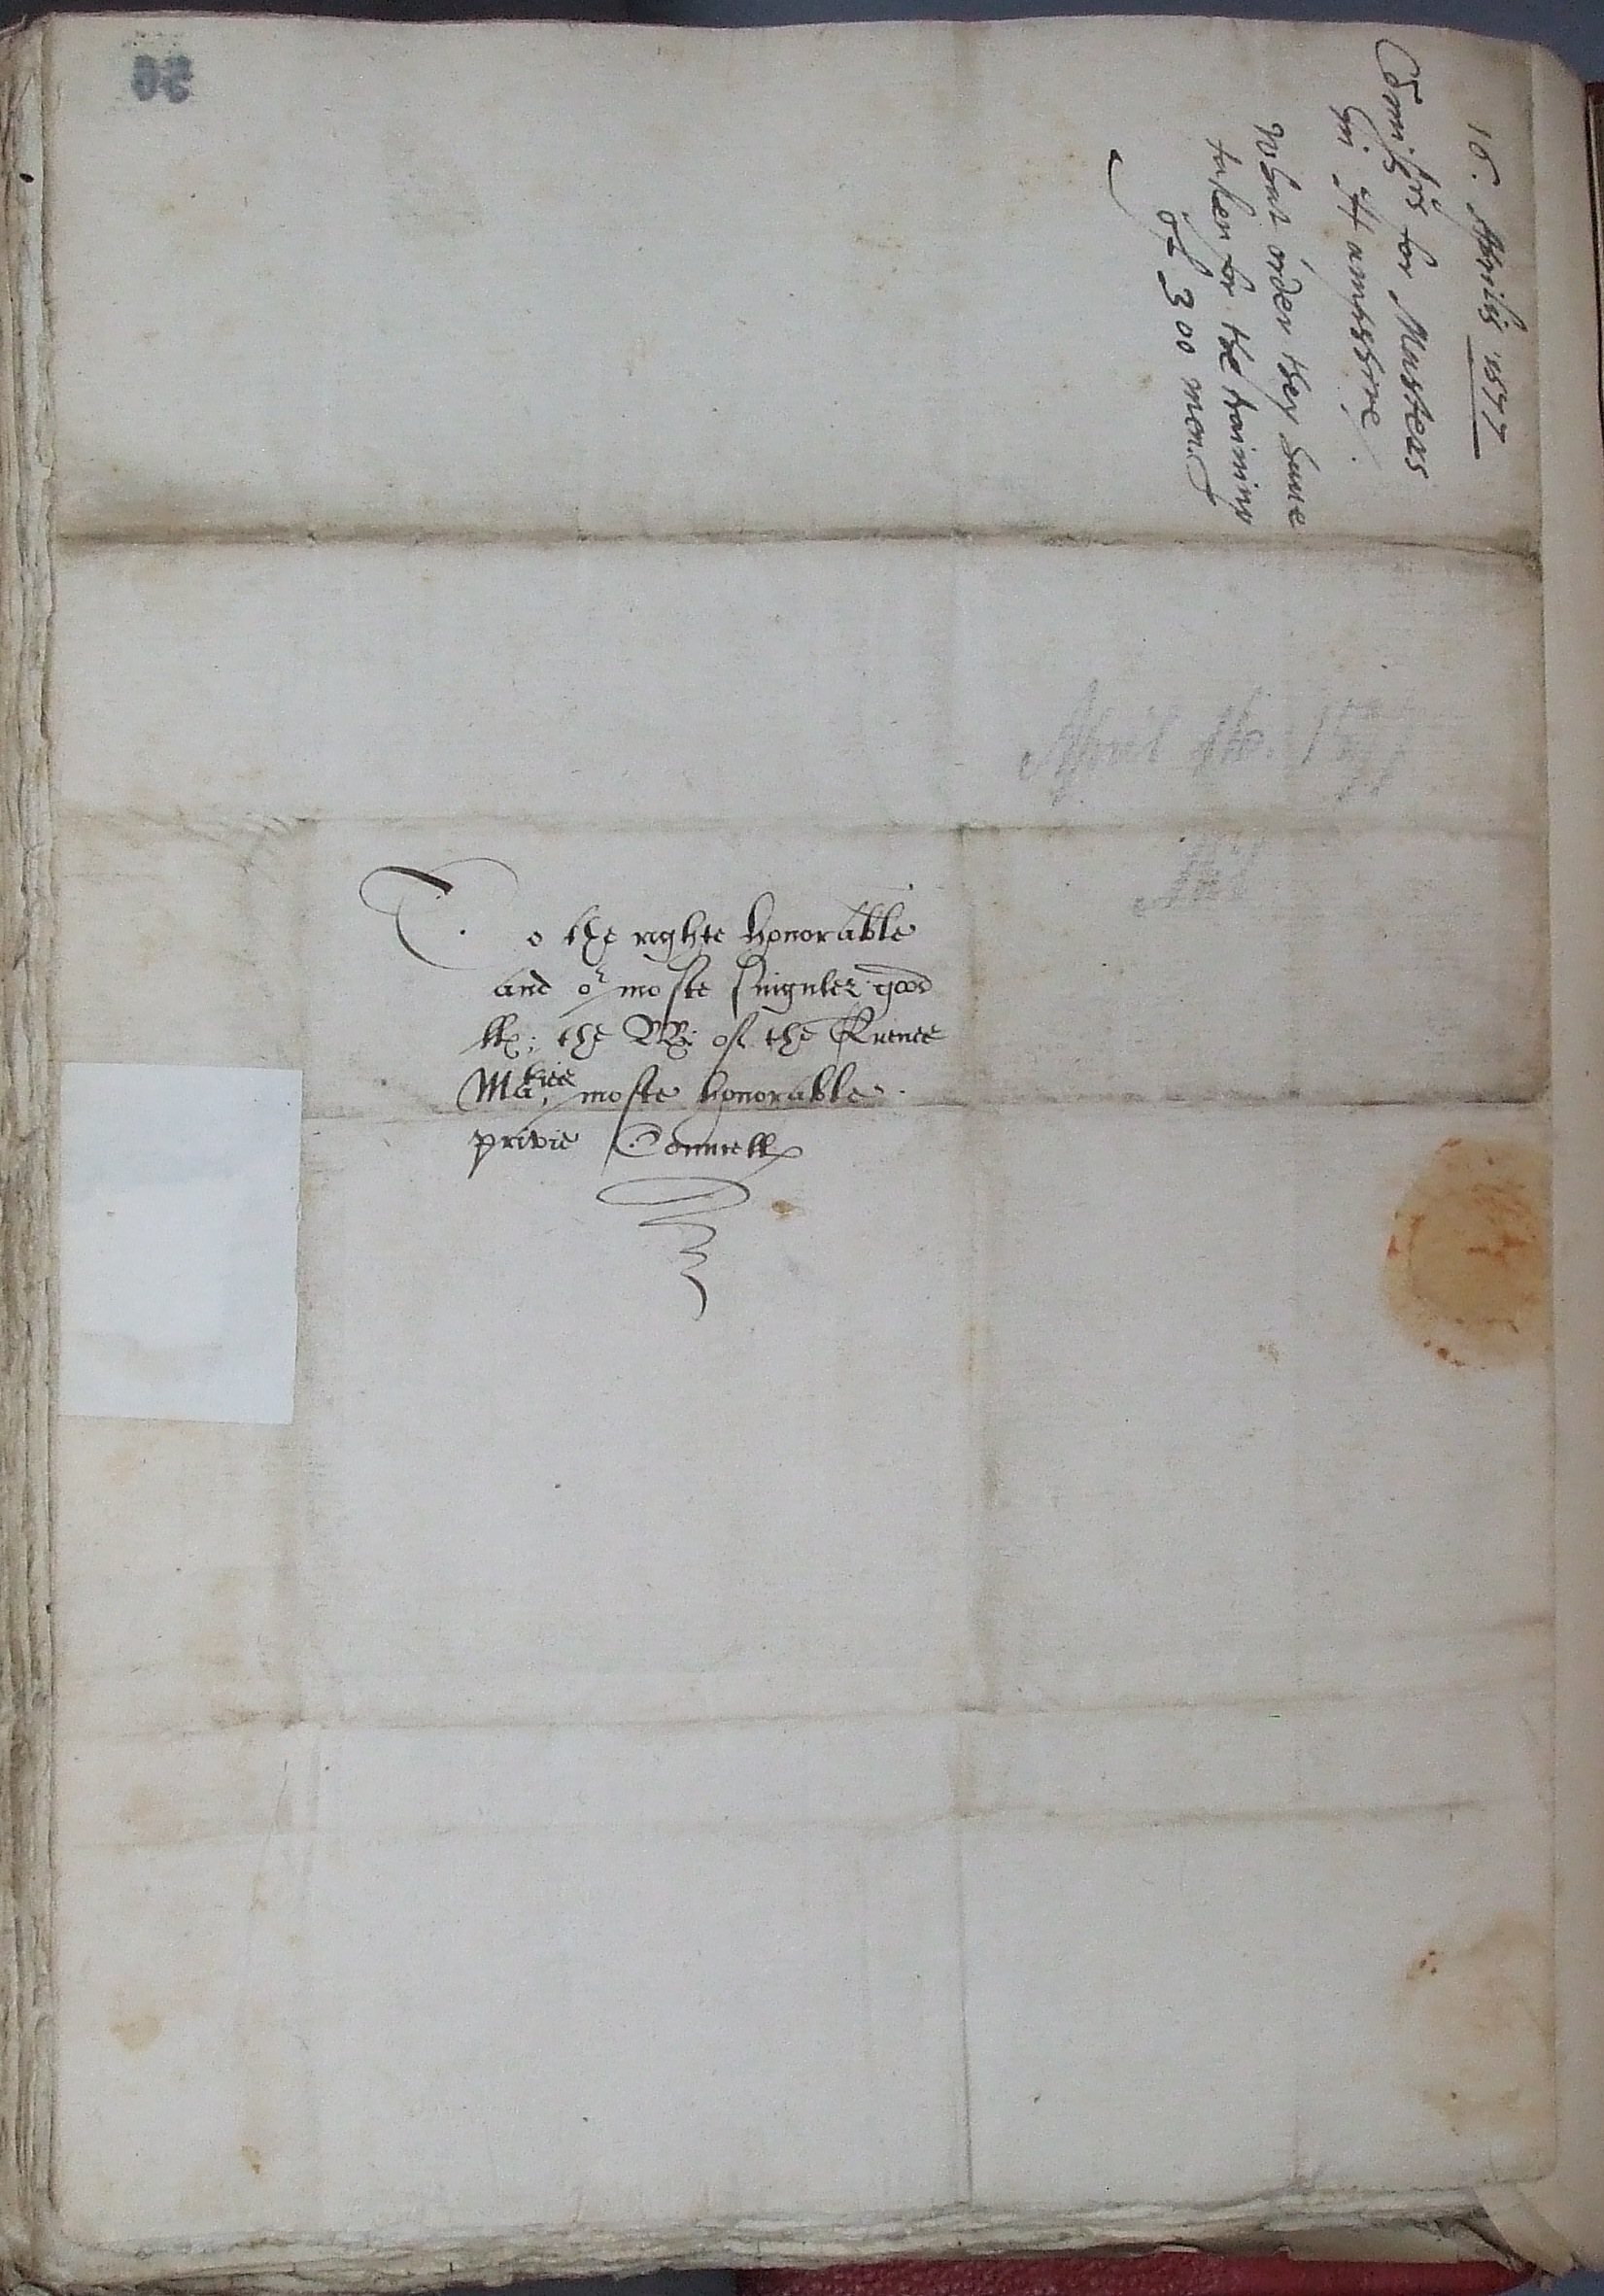 16. Aprilis 1577
Comissrs for Musters
in Hamshire.
What order they haue
taken for the training
of 300 men.
April 16. 1577
To the righte honorable
and or moste singuler good
ll: the LL: of the Quenes
Maties moste honorable
privie Counsell